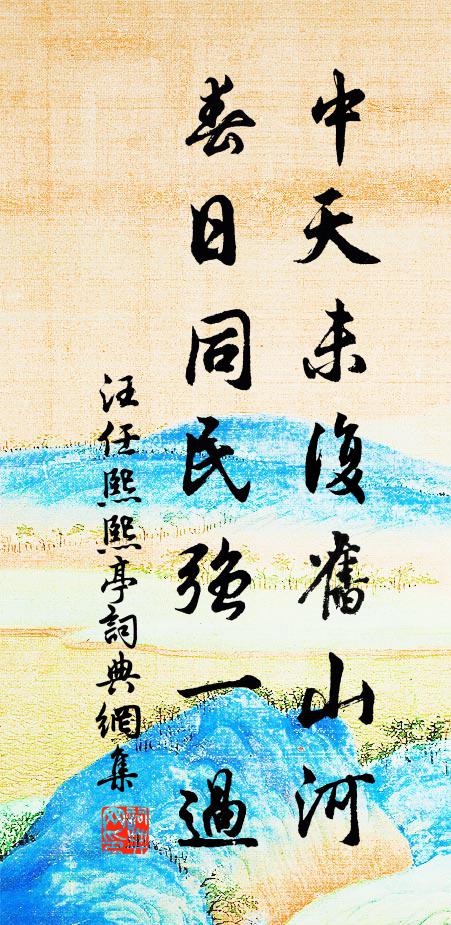 中天未復舊山河
春日同民強一過
汪任熙熙亭詞典網集